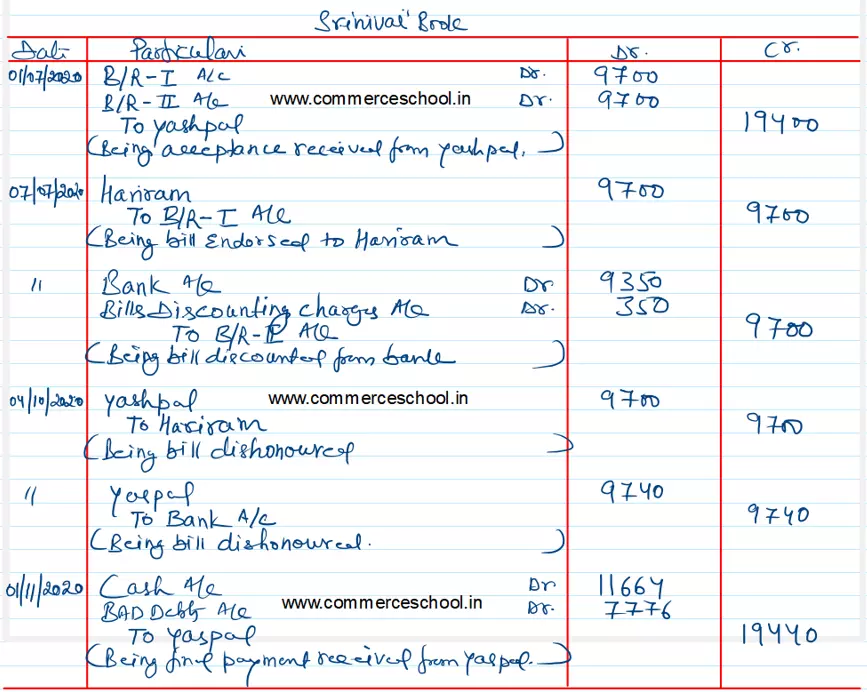 Srinivas' Book
Date Particulars Dr. Cr.
01/07/2020 B/R-I A/c Dr. 9700
B/R-II A/c www.commerceschool.in Dr. 9700
To yashpal 19400
(Being acceptance received from yashpal.)
07/07/2020 Hariram 9700
To B/R-I A/c 9700
(Being bill Endorsed to Hariram)
" Bank A/c Dr 9350
Bills Discounting charges A/c Dr. 350
To B/R-II A/c 9700
(Being bill discounted from bank)
04/10/2020 yashpal www.commerceschool.in 9700
To Hariram 9700
(Being bill dishonoured)
" Yaspal 9740
To Bank A/c 9740
(Being bill dishonoured.)
01/11/2020 Cash A/c Dr 11664
BAD Debts A/c www.commerceschool.in Dr. 7776
To Yaspal 19440
(Being final payment received from Yaspal.)